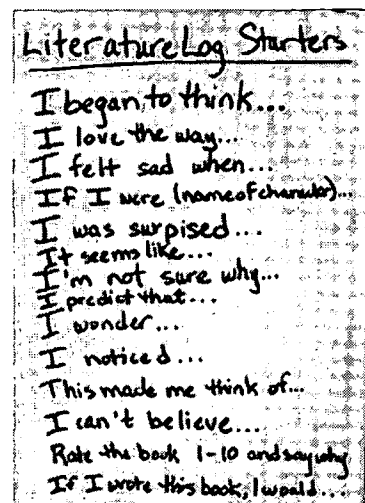 Literature Log Starters
I began to think...
I love the way...
I felt sad when...
If I were (name of character)...
I was surpised...
It seems like...
I'm not sure why...
I predict that...
I wonder...
I noticed...
This made me think of...
I can't believe...
Rate the book 1-10 and say why
If I wrote this book, I would...